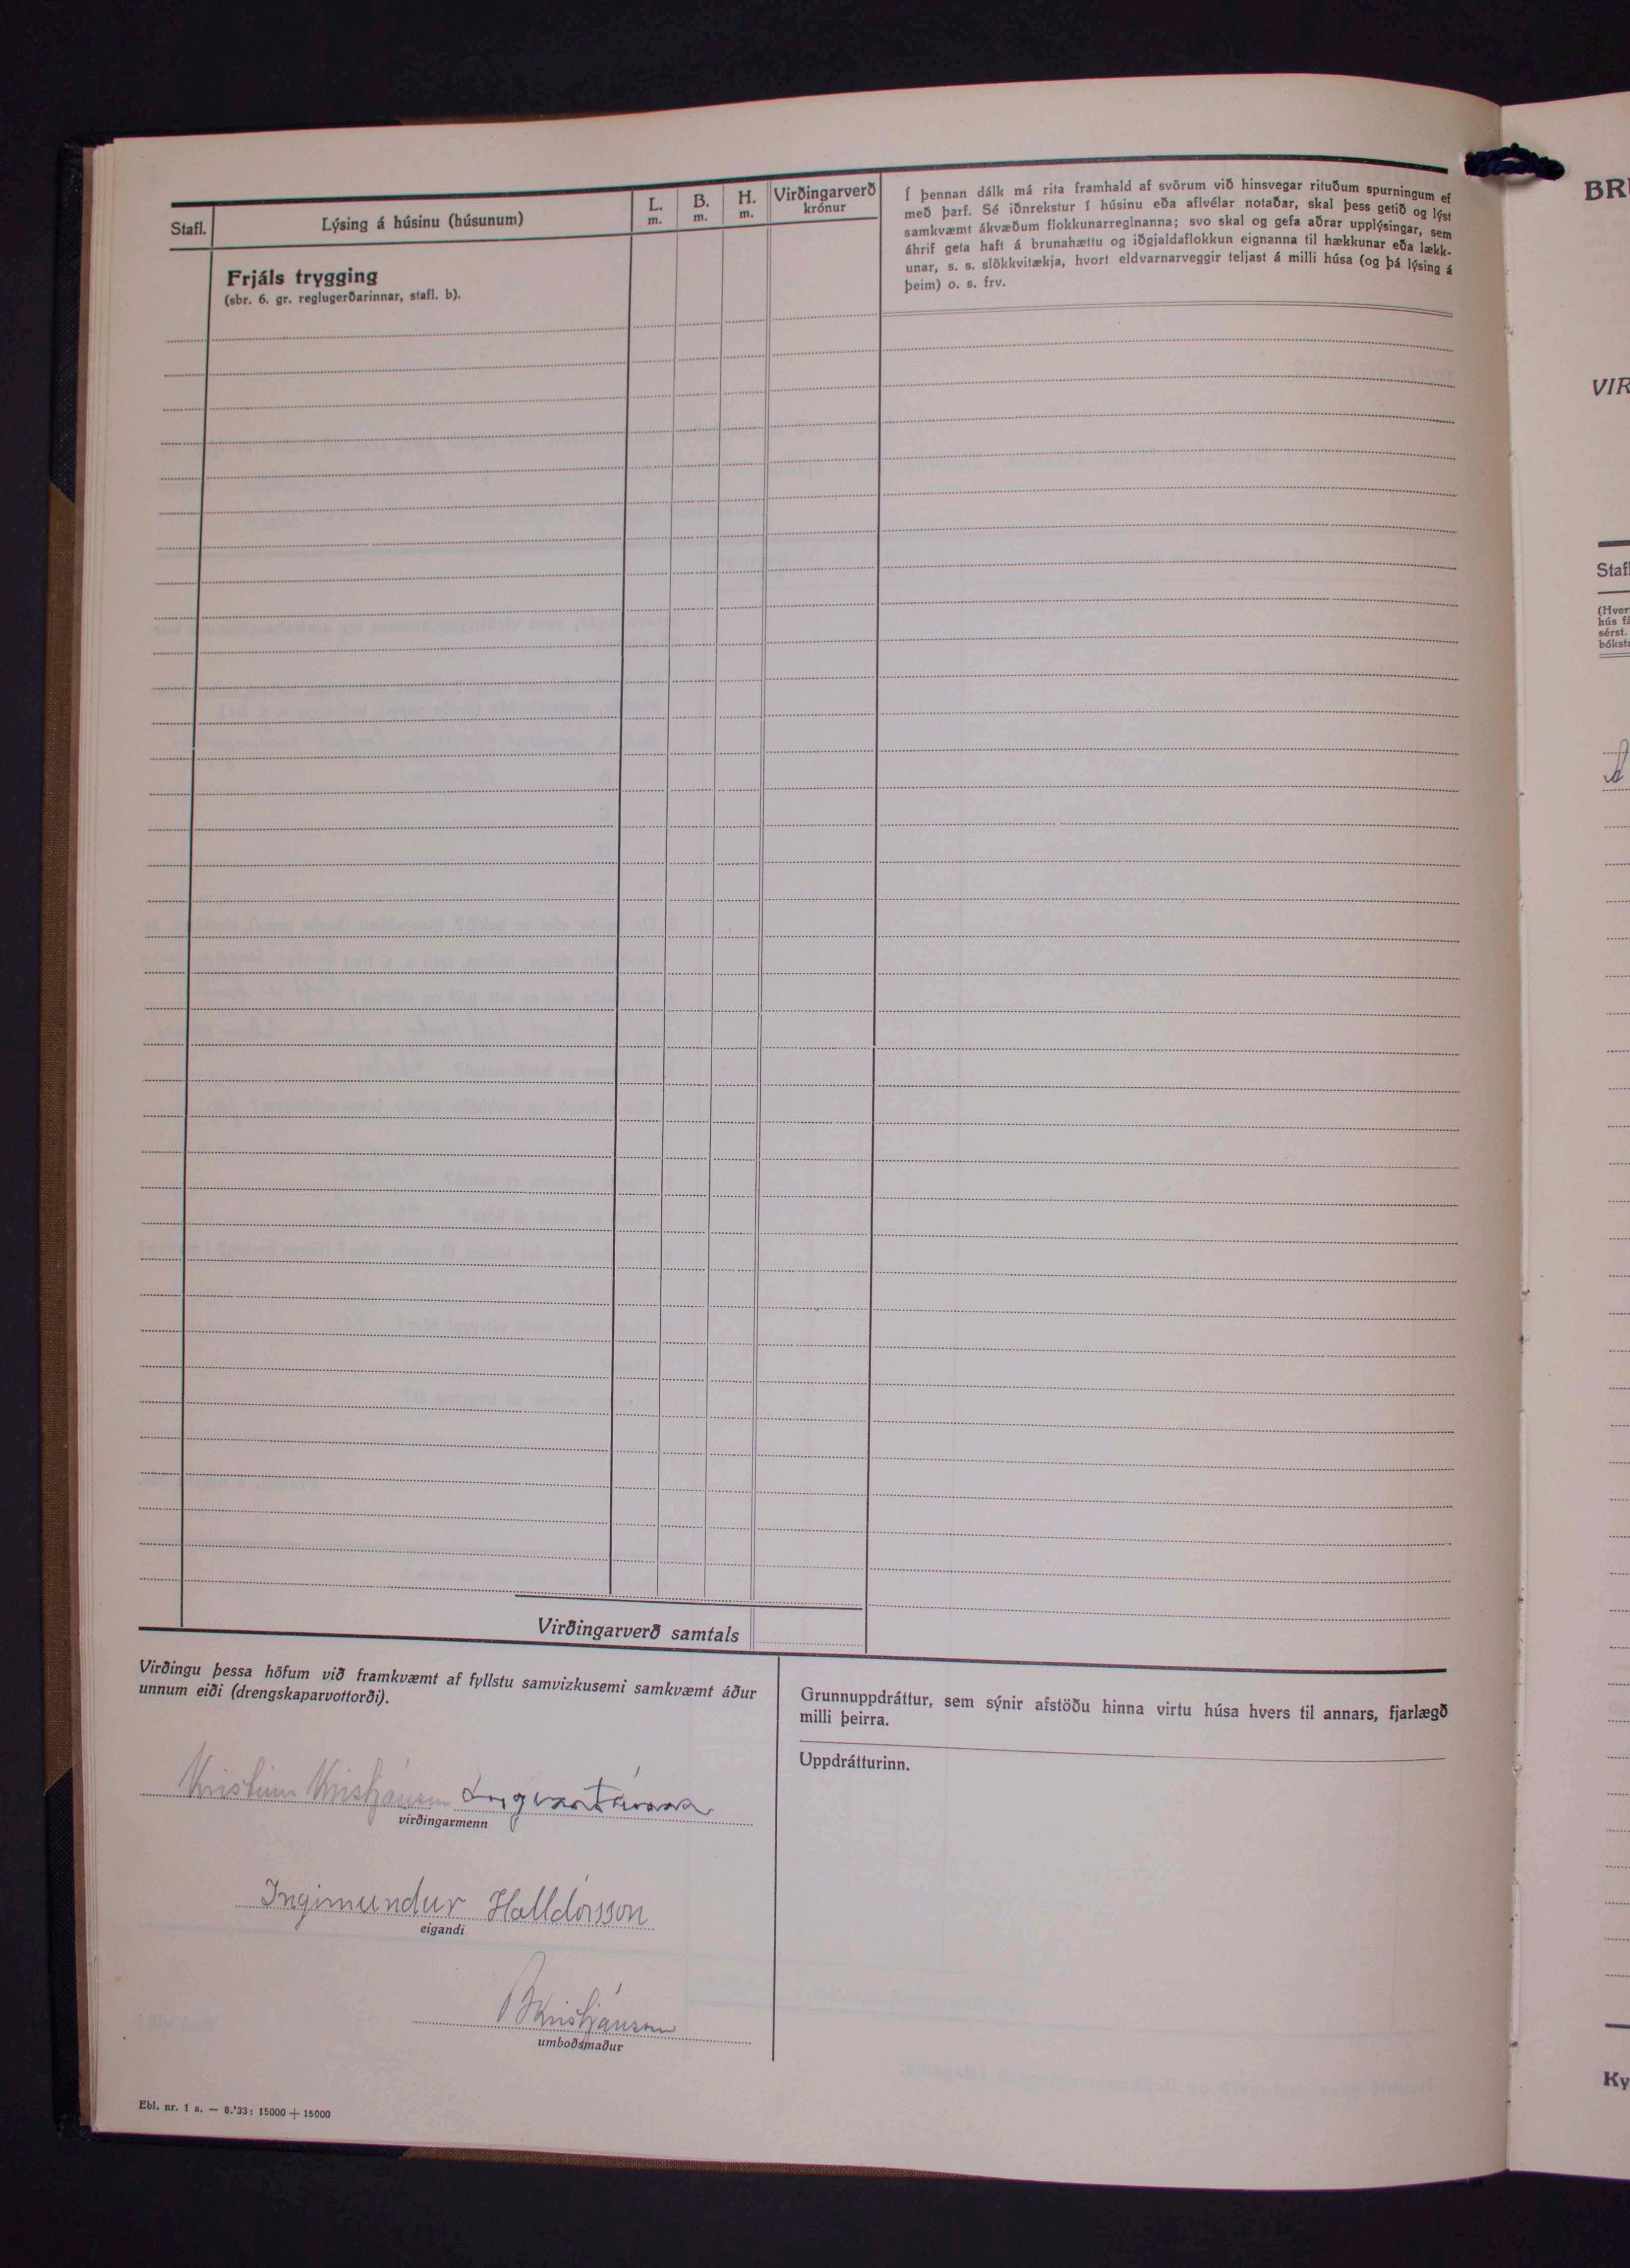 Stafl.
Lýsing á húsinu (húsunum)
L.
m.
B.
m.
H.
m.
Virðingarverð
krónur
Frjáls trygging
(sbr. 6. gr. reglugerðarinnar, stafl. b).
Í þennan dálk má rita framhald af svörum við hinsvegar rituðum spurningum ef
með þarf. Sé iðnrekstur í húsinu eða aflvélar notaðar, skal þess getið og lýst
samkvæmt ákvæðum flokkunarreglnanna; svo skal og gefa aðrar upplýsingar, sem
áhrif geta haft á brunahættu og iðgjaldaflokkun eignanna til hækkunar eða lækk-
unar, s. s. slökkvitækja, hvort eldvarnarveggir teljast á milli húsa (og þá lýsing á
þeim) o. s. frv.
Virðingarverð samtals
Virðingu þessa höfum við framkvæmt af fyllstu samvizkusemi samkvæmt áður
unnum eiði (drengskaparvottorði).
Kristinn Kristjánsson
virðingarmenn
Ingimundur Halldórsson
eigandi
BKristjánsson
umboðsmaður
Grunnuppdráttur, sem sýnir afstöðu hinna virtu húsa hvers til annars, fjarlægð
milli þeirra.
Uppdrátturinn.
Ebl. nr. 1 a. — 8.'33: 15000 + 15000
BR
VIR
Staf
(Hver
hús f
sérst.
bókst
Ky